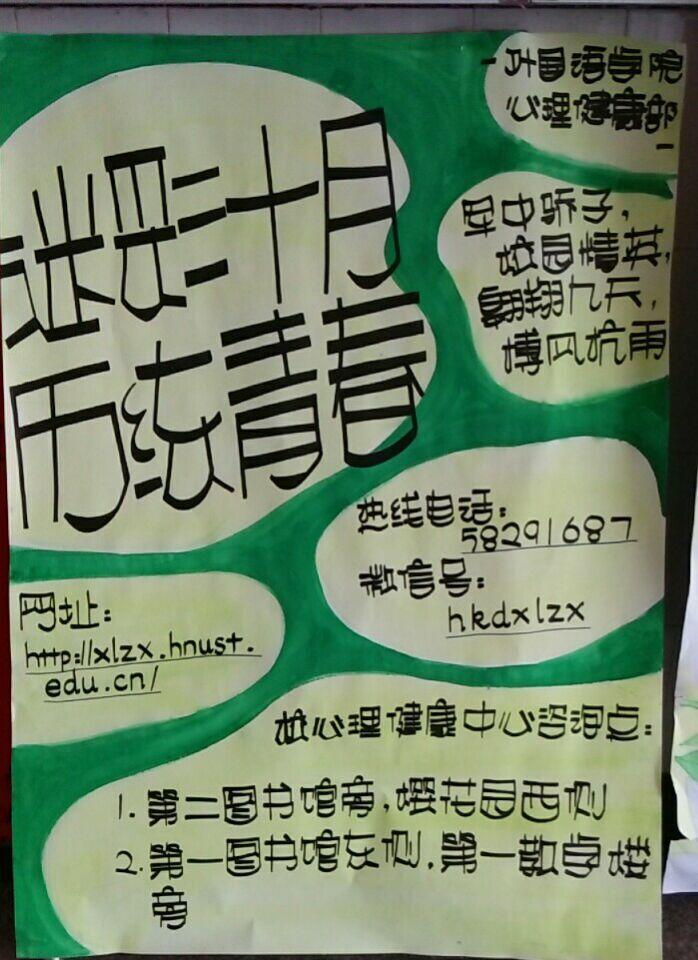 迷彩十月
历练青春
-外国语学院
心理健康部-
军中骄子，
校园精英，
翱翔九天，
搏风抗雨
热线电话：
58291687
微信号：
hkdxlzx
网址：
http://xlzx.hnust.
edu.cn/
校心理健康中心咨询点：
1. 第二图书馆旁，樱花园西侧
2. 第一图书馆左侧，第一教学楼
旁